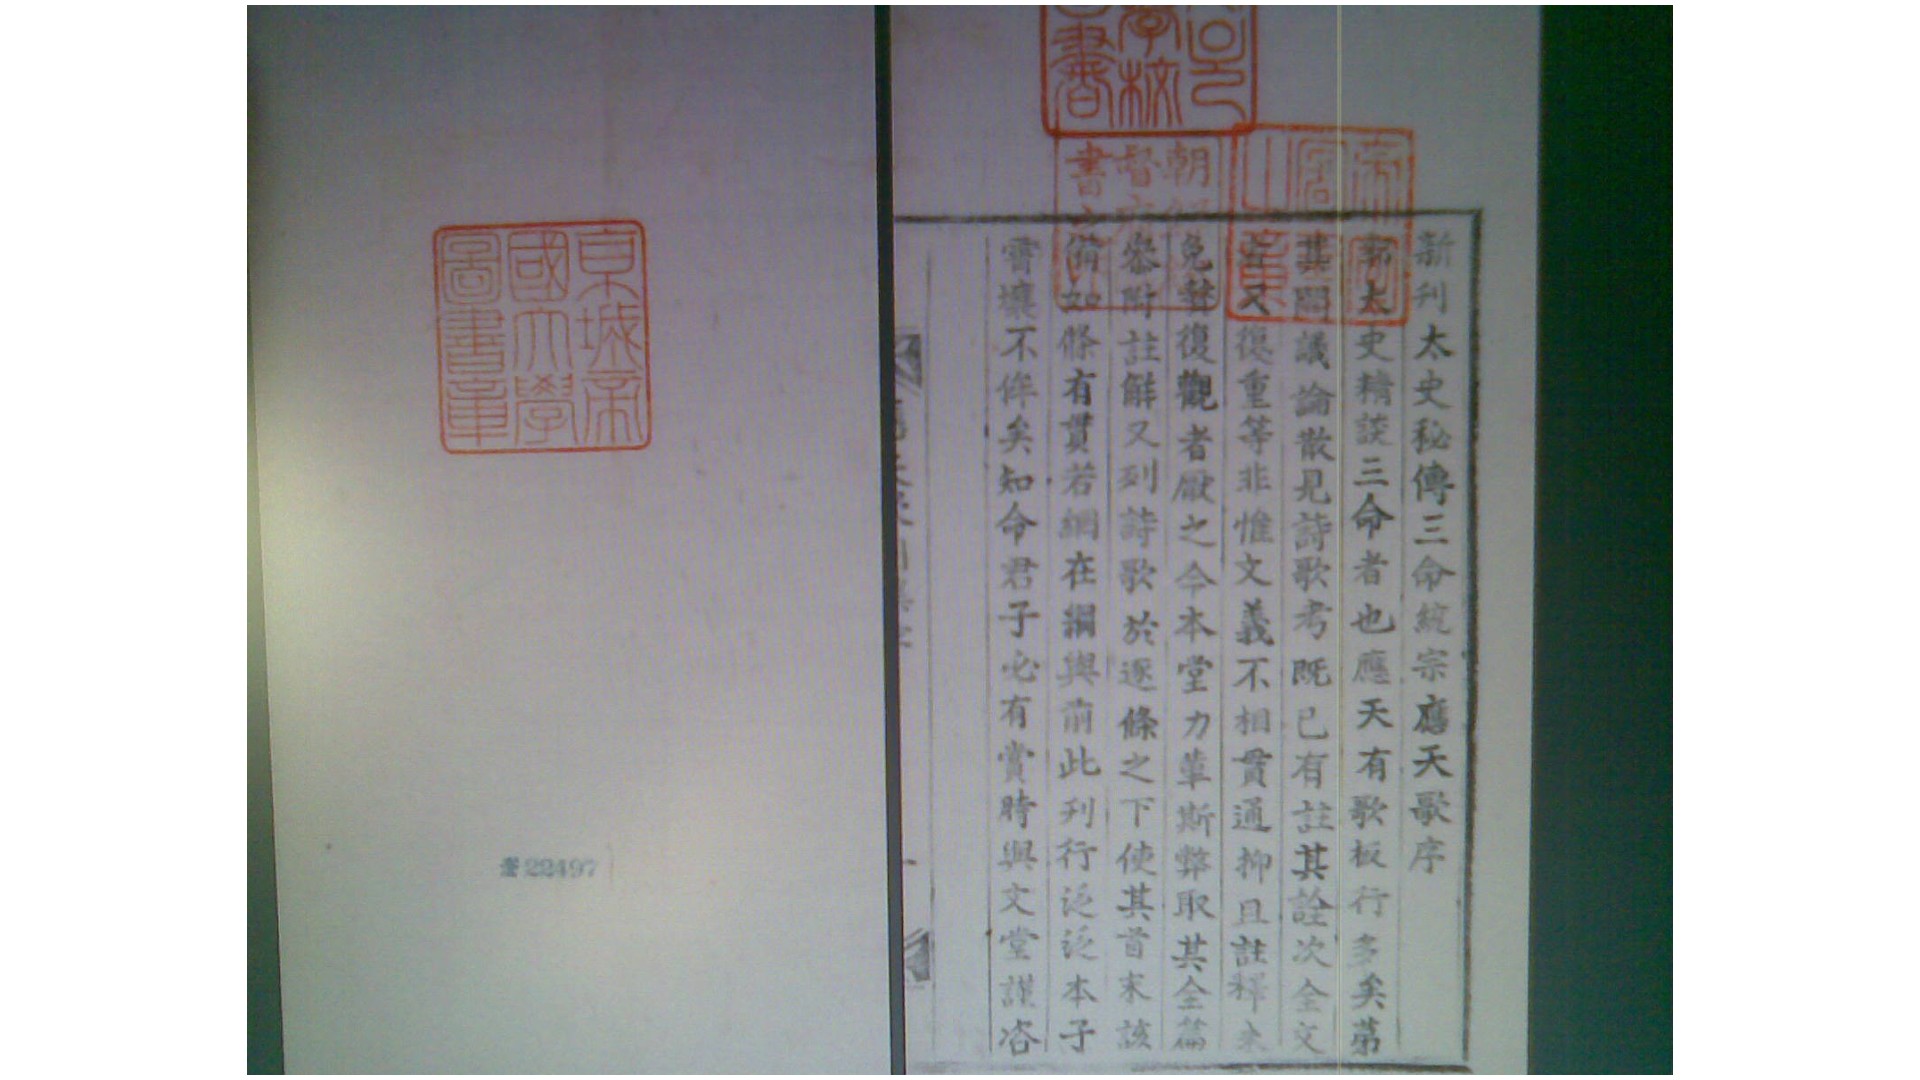 新刊太史秘傳三命統宗應天歌序
郭太史精談三命者也應天有歌板行多矣苐
其間議論散見詩歌考既已有註其詮次全文
又復重等非惟文義不相貫通抑且註釋未
免雙復觀者厭之今本堂力革斯弊取其全篇
叅附註觧又列詩歌於逐條之下使其首末該
備如條有貫若綱在綱與前此刋行泛泛本子
霄壤不侔矣知命君子必有賞時與文堂謹咨
京城帝
國大學
圖書章
22497
朝
督府
書
帝